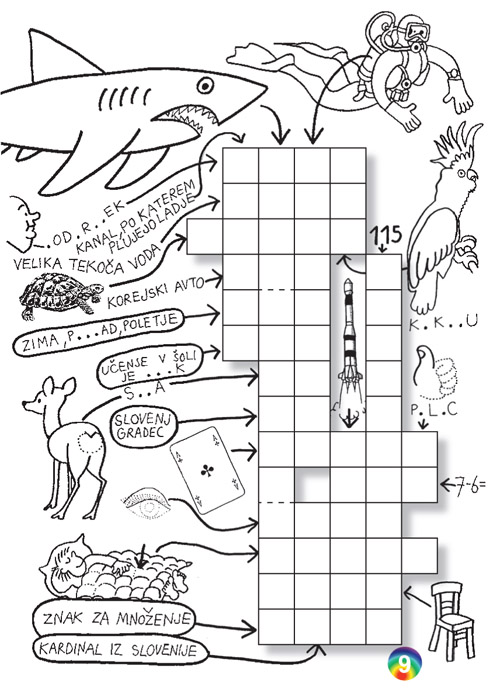 115
.OD.R..EK
KANAL PO KATEREM
PLUJEJO LADJE
VELIKA TEKOČA VODA
KOREJSKI AVTO
K.K..U
ZIMA, P...AD, POLETJE
UČENJE V ŠOLI
JE ...K
S..A
P.L.C
SLOVENJ
GRADEC
A
A
7-6=
ZNAK ZA MNOŽENJE
KARDINAL IZ SLOVENIJE
9